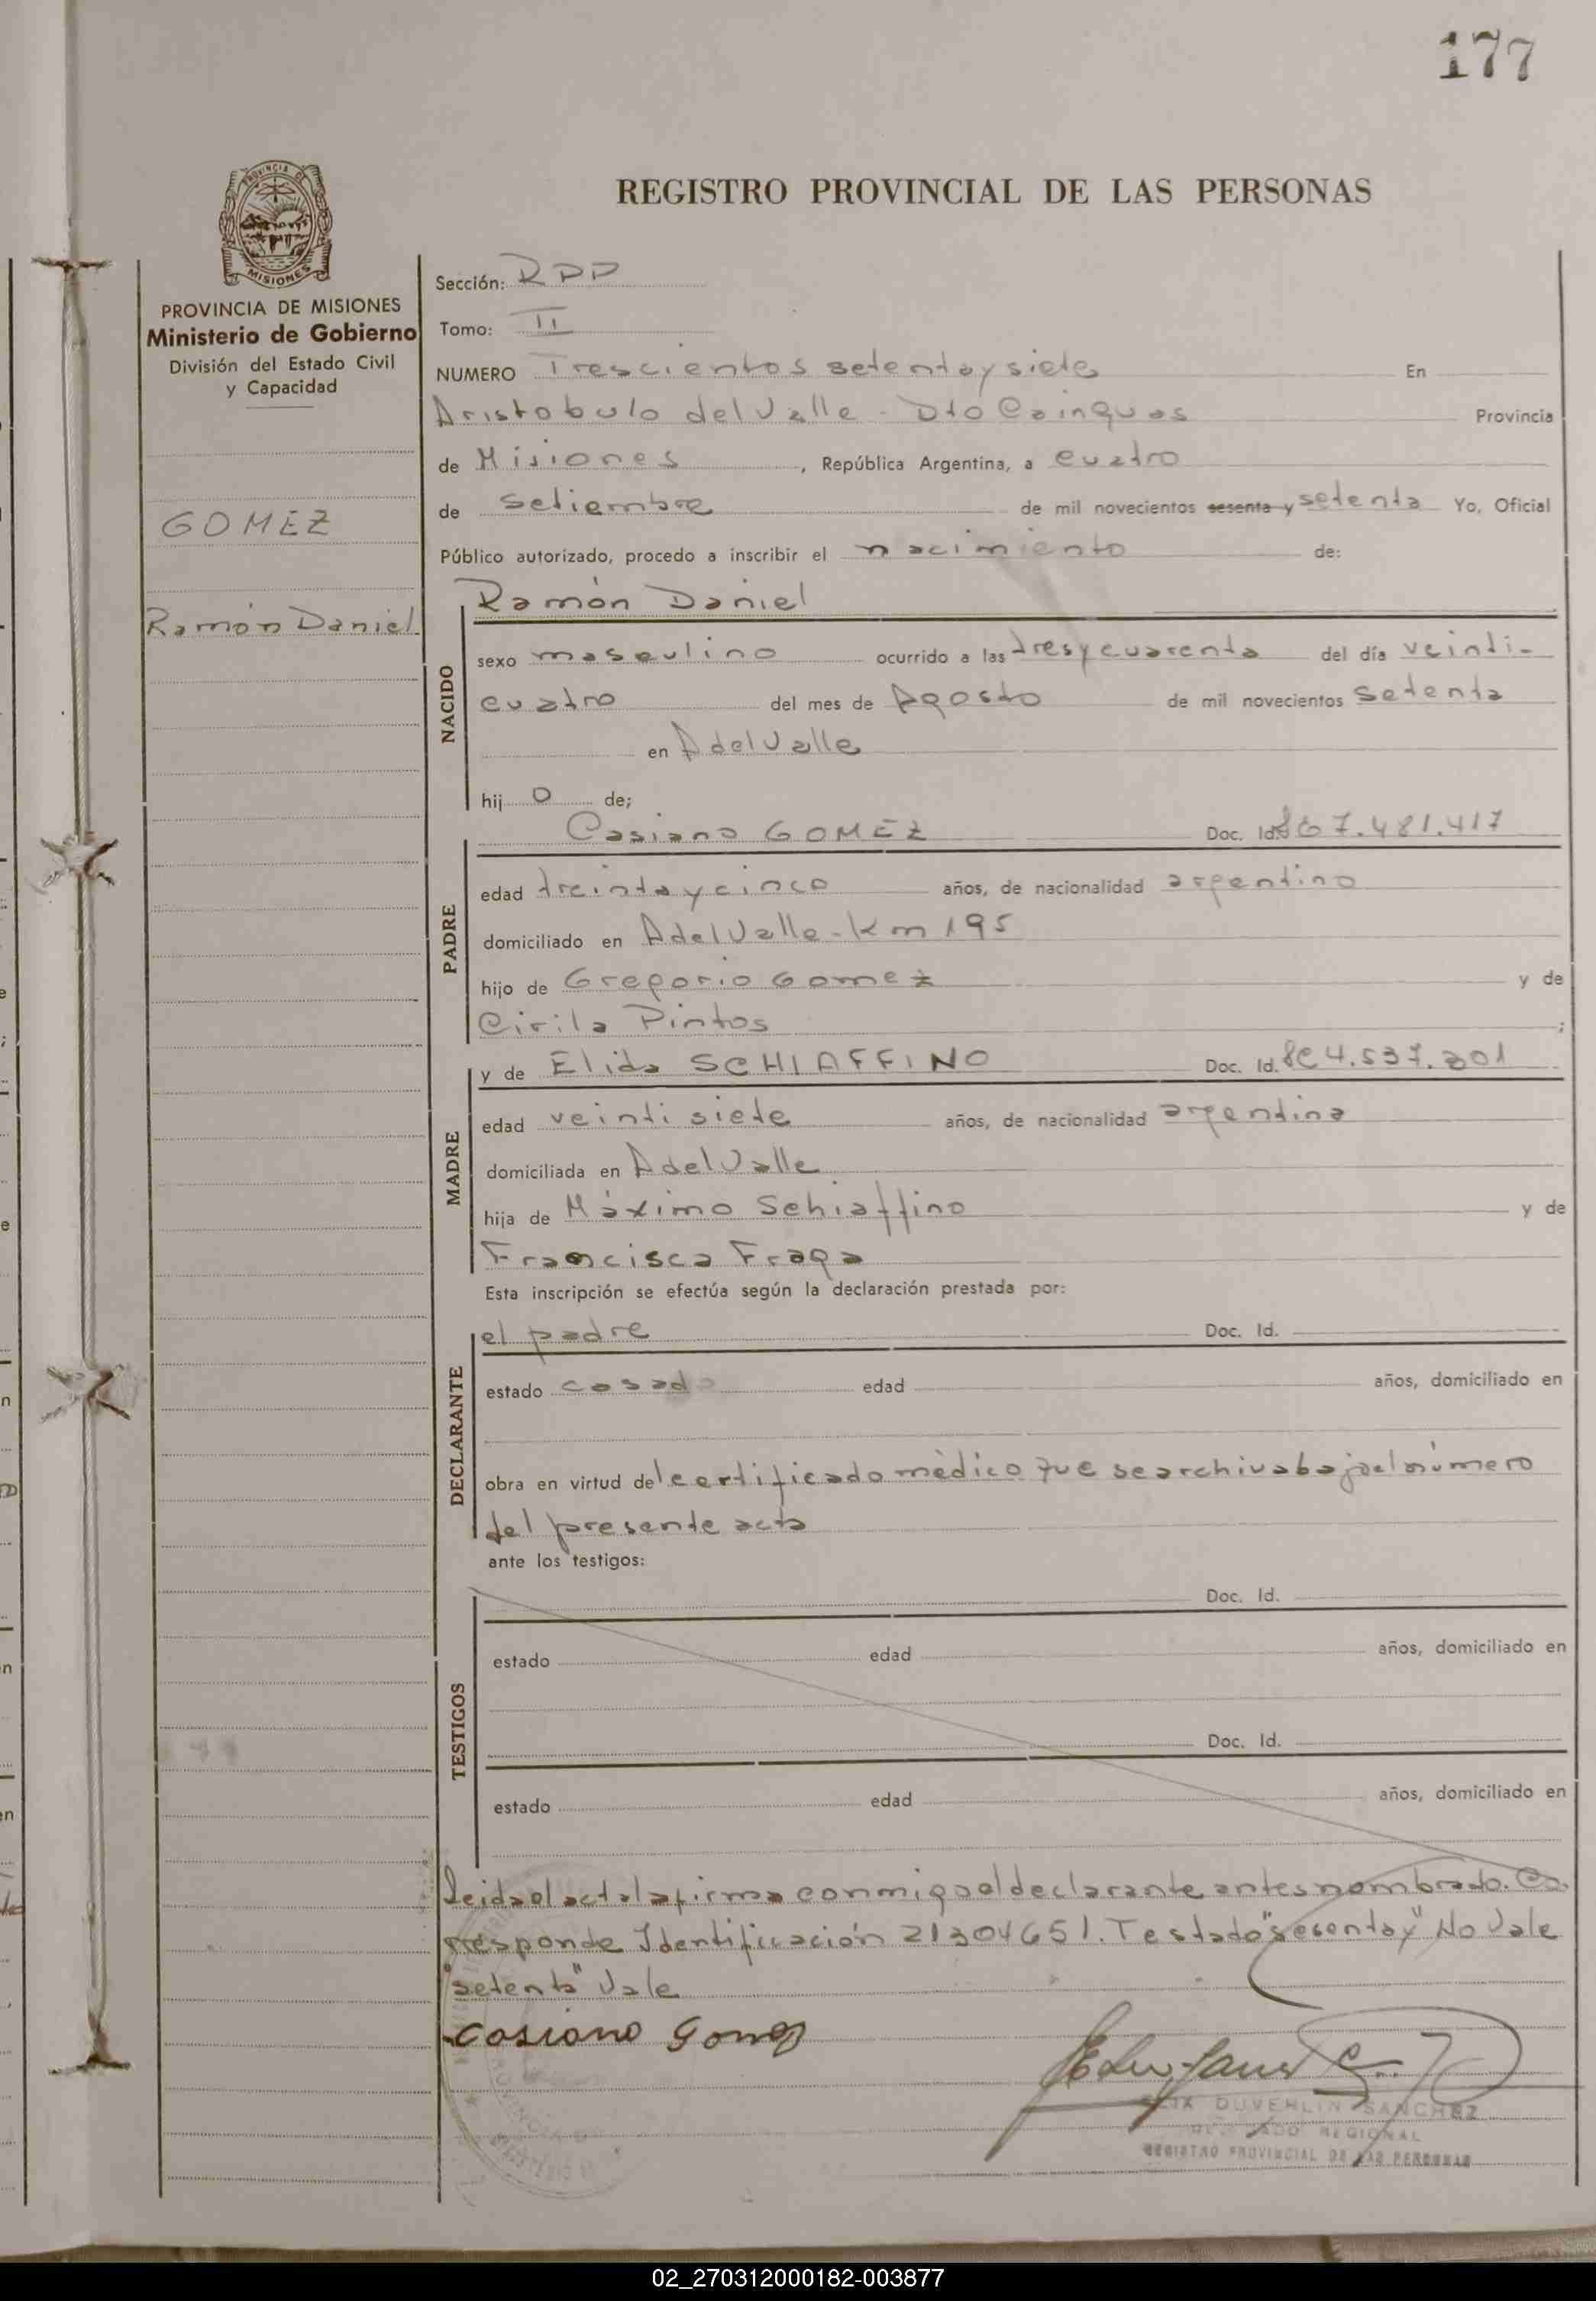 177
PROVINCIA DE MISIONES
REGISTRO PROVINCIAL DE LAS PERSONAS
PROVINCIA DE MISIONES
Ministerio de Gobierno
División del Estado Civil
y Capacidad
GOMEZ
Ramón Daniel
Sección: RPP
Tomo: II
NUMERO Trescientos setenta y siete En
Aristobulo del Valle - Dto Cainguas Provincia
de Misiones, República Argentina, a cuatro
de setiembre de mil novecientos sesenta y setenta Yo, Oficial
Público autorizado, procedo a inscribir el nacimiento de:
NACIDO
Ramón Daniel
sexo masculino ocurrido a las tres y cuarenta del día veinti-
cuatro del mes de Agosto de mil novecientos setenta
en A del Valle
hij o de;
PADRE
Casiano GOMEZ Doc. Id. 7.481.417
edad treinta y cinco años, de nacionalidad argentino
domiciliado en A del Valle - Km 195
hijo de Gregorio Gomez y de
Cirila Pintos ;
MADRE
y de Elida SCHIAFFINO Doc. Id. 4.537.301
edad veinti siete años, de nacionalidad argentina
domiciliada en A del Valle
hija de Máximo Schiaffino y de
Francisca Fraga
Esta inscripción se efectúa según la declaración prestada por:
DECLARANTE
el padre Doc. Id.
estado casado edad años, domiciliado en
obra en virtud del certificado médico que se archiva bajo el número
del presente acta
ante los testigos:
TESTIGOS
Doc. Id.
estado edad años, domiciliado en
Doc. Id.
estado edad años, domiciliado en
Leida el acta la firma conmigo el declarante antes nombrado. Co
rresponde Identificación 21304651. Testado "sesenta y" No Vale
"setenta" Vale
Casiano Gomez
DUVERLIN SANCHEZ
REGIONAL
REGISTRO PROVINCIAL DE LAS PERSONAS
02_270312000182-003877